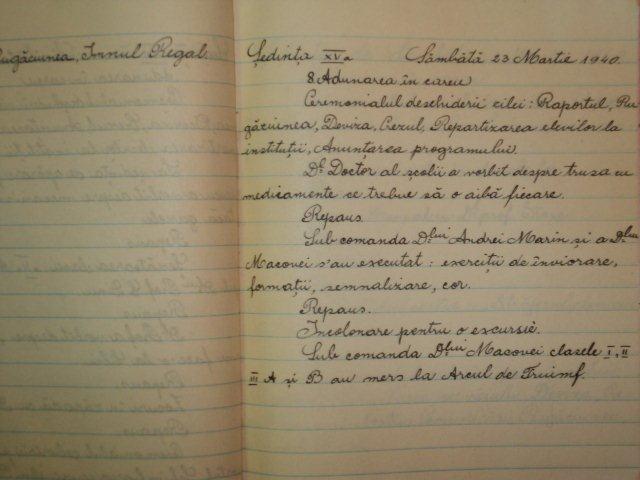 Rugăciunea, Imnul Regal.
Ședința XV a Sâmbătă 23 Martie 1940.
8 Adunarea în careu
Ceremonialul deschiderii zilei: Raportul, Ru-
găciunea, Deviza, Crezul, Repartizarea elevilor la
instituții, Anunțarea programului.
Dl. Doctor al școlii a vorbit despre trusa cu
medicamente ce trebue să o aibă fiecare.
Repaus
Sub comanda Dlui Andrei Marin și a Dlui
Macovei s'au executat: exerciții de înviorare,
formații, semnalizare, cor.
Repaus.
Incolonare pentru o excursie.
Sub comanda Dlui Macovei clasele I, II
III A și B au mers la Arcul de Triumf.